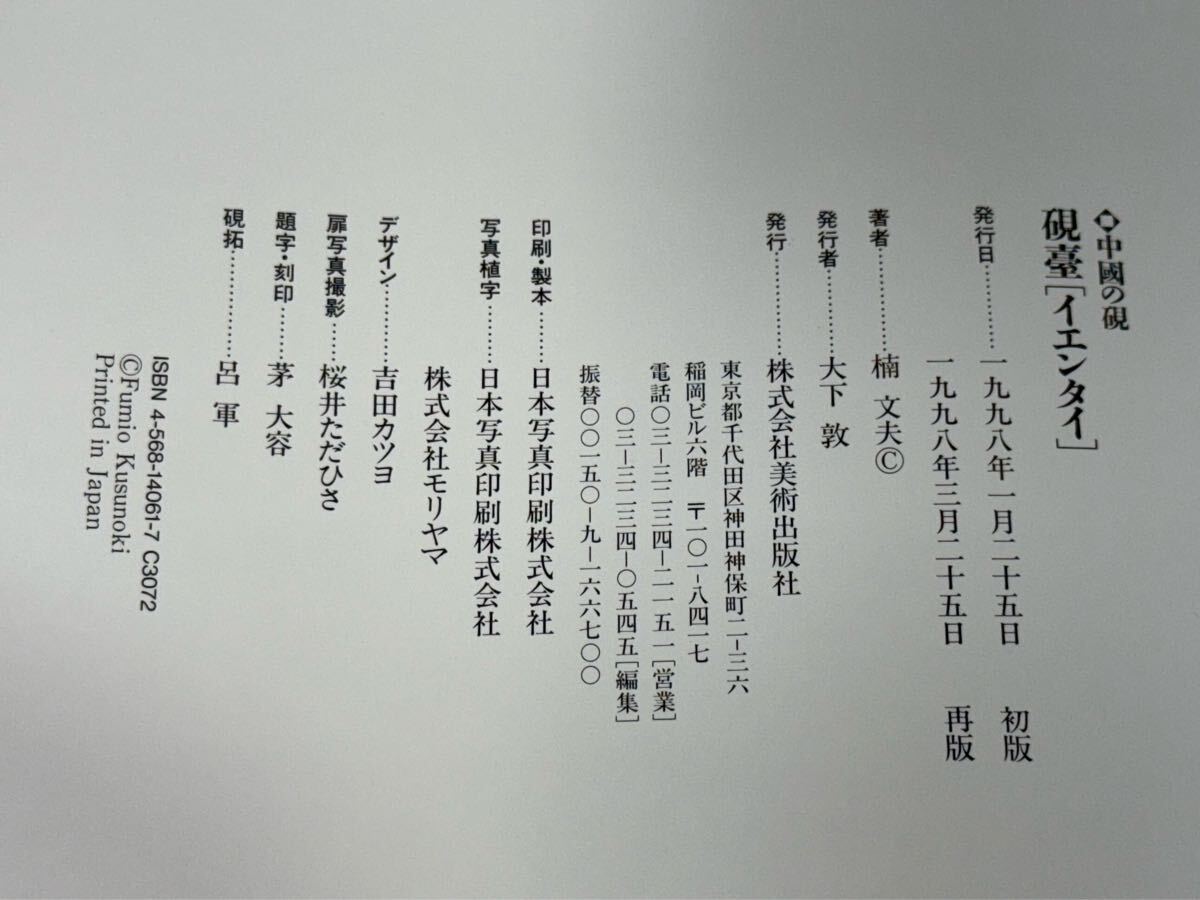 ◆中國の硯
硯臺[イエンタイ]
発行日…………一九九八年一月二十五日　初版
一九九八年三月二十五日　再版
著者…………楠　文夫©
発行者…………大下　敦
発行…………株式会社美術出版社
東京都千代田区神田神保町二−三六
稲岡ビル六階　〒一〇一−八四一七
電話〇三−三二三四−二一五一[営業]
〇三−三二三四−〇五四五[編集]
振替〇〇一五〇−九−一六六七〇〇
印刷・製本…………日本写真印刷株式会社
写真植字…………日本写真印刷株式会社
株式会社モリヤマ
デザイン…………吉田カツヨ
扉写真撮影……桜井ただひさ
題字・刻印………茅　大容
硯拓……………呂　軍
ISBN 4-568-14061-7 C3072
©Fumio Kusunoki
Printed in Japan